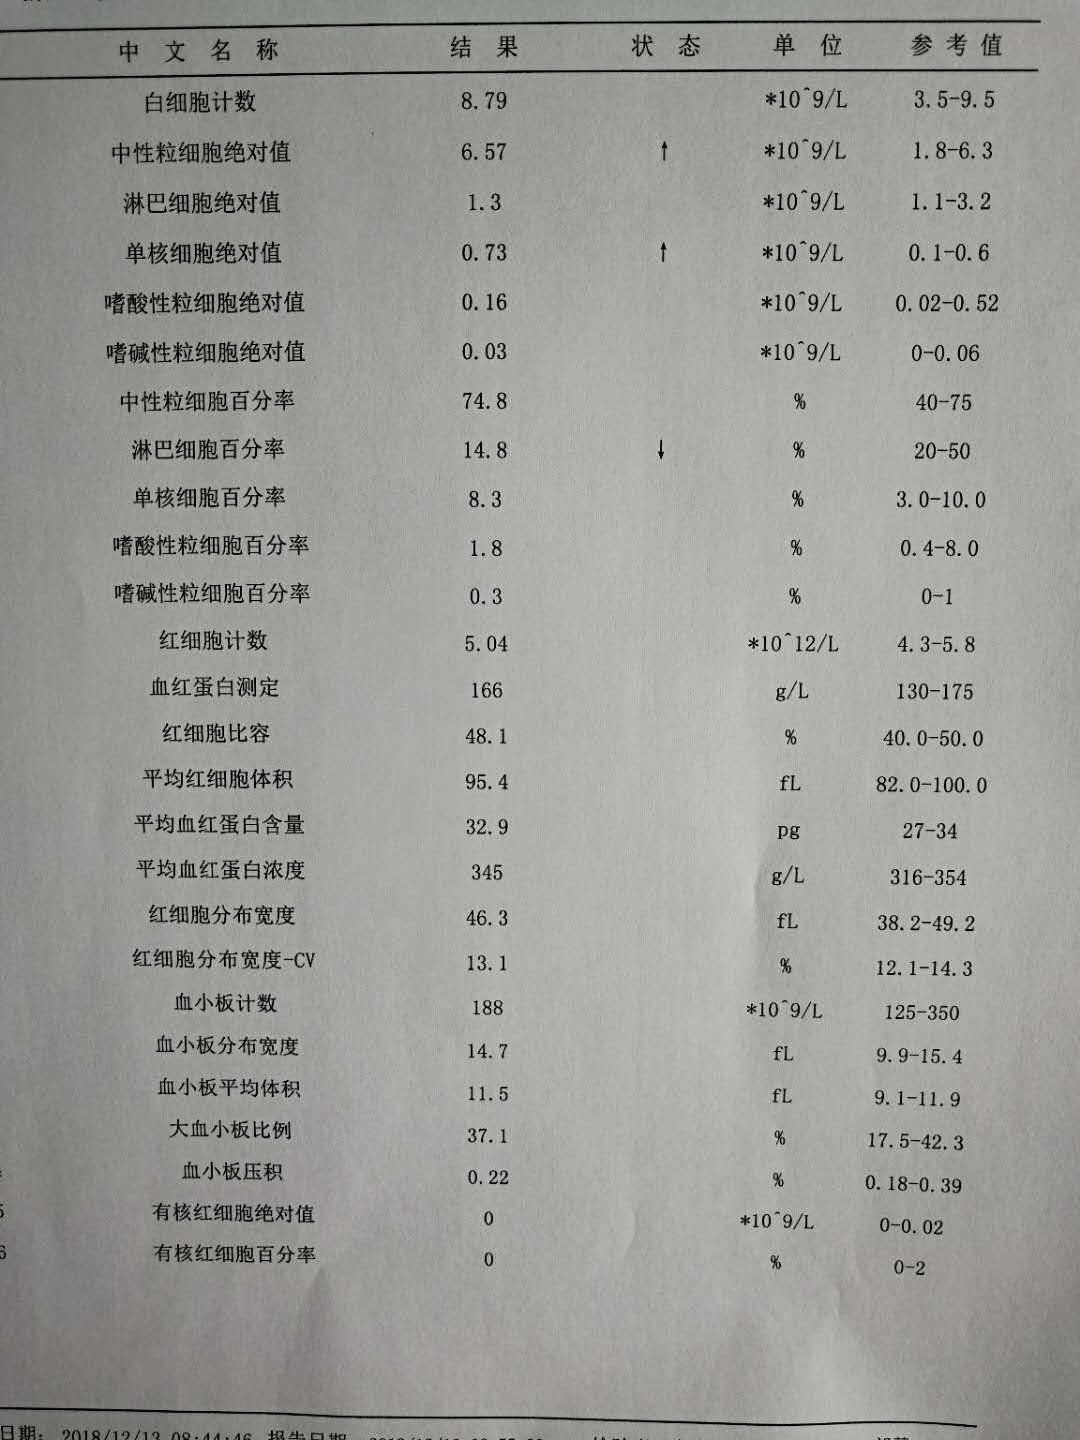 中文名称 结果 状态 单位 参考值
白细胞计数 8.79 *10^9/L 3.5-9.5
中性粒细胞绝对值 6.57 ↑ *10^9/L 1.8-6.3
淋巴细胞绝对值 1.3 *10^9/L 1.1-3.2
单核细胞绝对值 0.73 ↑ *10^9/L 0.1-0.6
嗜酸性粒细胞绝对值 0.16 *10^9/L 0.02-0.52
嗜碱性粒细胞绝对值 0.03 *10^9/L 0-0.06
中性粒细胞百分率 74.8 % 40-75
淋巴细胞百分率 14.8 ↓ % 20-50
单核细胞百分率 8.3 % 3.0-10.0
嗜酸性粒细胞百分率 1.8 % 0.4-8.0
嗜碱性粒细胞百分率 0.3 % 0-1
红细胞计数 5.04 *10^12/L 4.3-5.8
血红蛋白测定 166 g/L 130-175
红细胞比容 48.1 % 40.0-50.0
平均红细胞体积 95.4 fL 82.0-100.0
平均血红蛋白含量 32.9 pg 27-34
平均血红蛋白浓度 345 g/L 316-354
红细胞分布宽度 46.3 fL 38.2-49.2
红细胞分布宽度-CV 13.1 % 12.1-14.3
血小板计数 188 *10^9/L 125-350
血小板分布宽度 14.7 fL 9.9-15.4
血小板平均体积 11.5 fL 9.1-11.9
大血小板比例 37.1 % 17.5-42.3
血小板压积 0.22 % 0.18-0.39
5 有核红细胞绝对值 0 *10^9/L 0-0.02
6 有核红细胞百分率 0 % 0-2
日期: 2018/12/13 08:44:46 报告日期